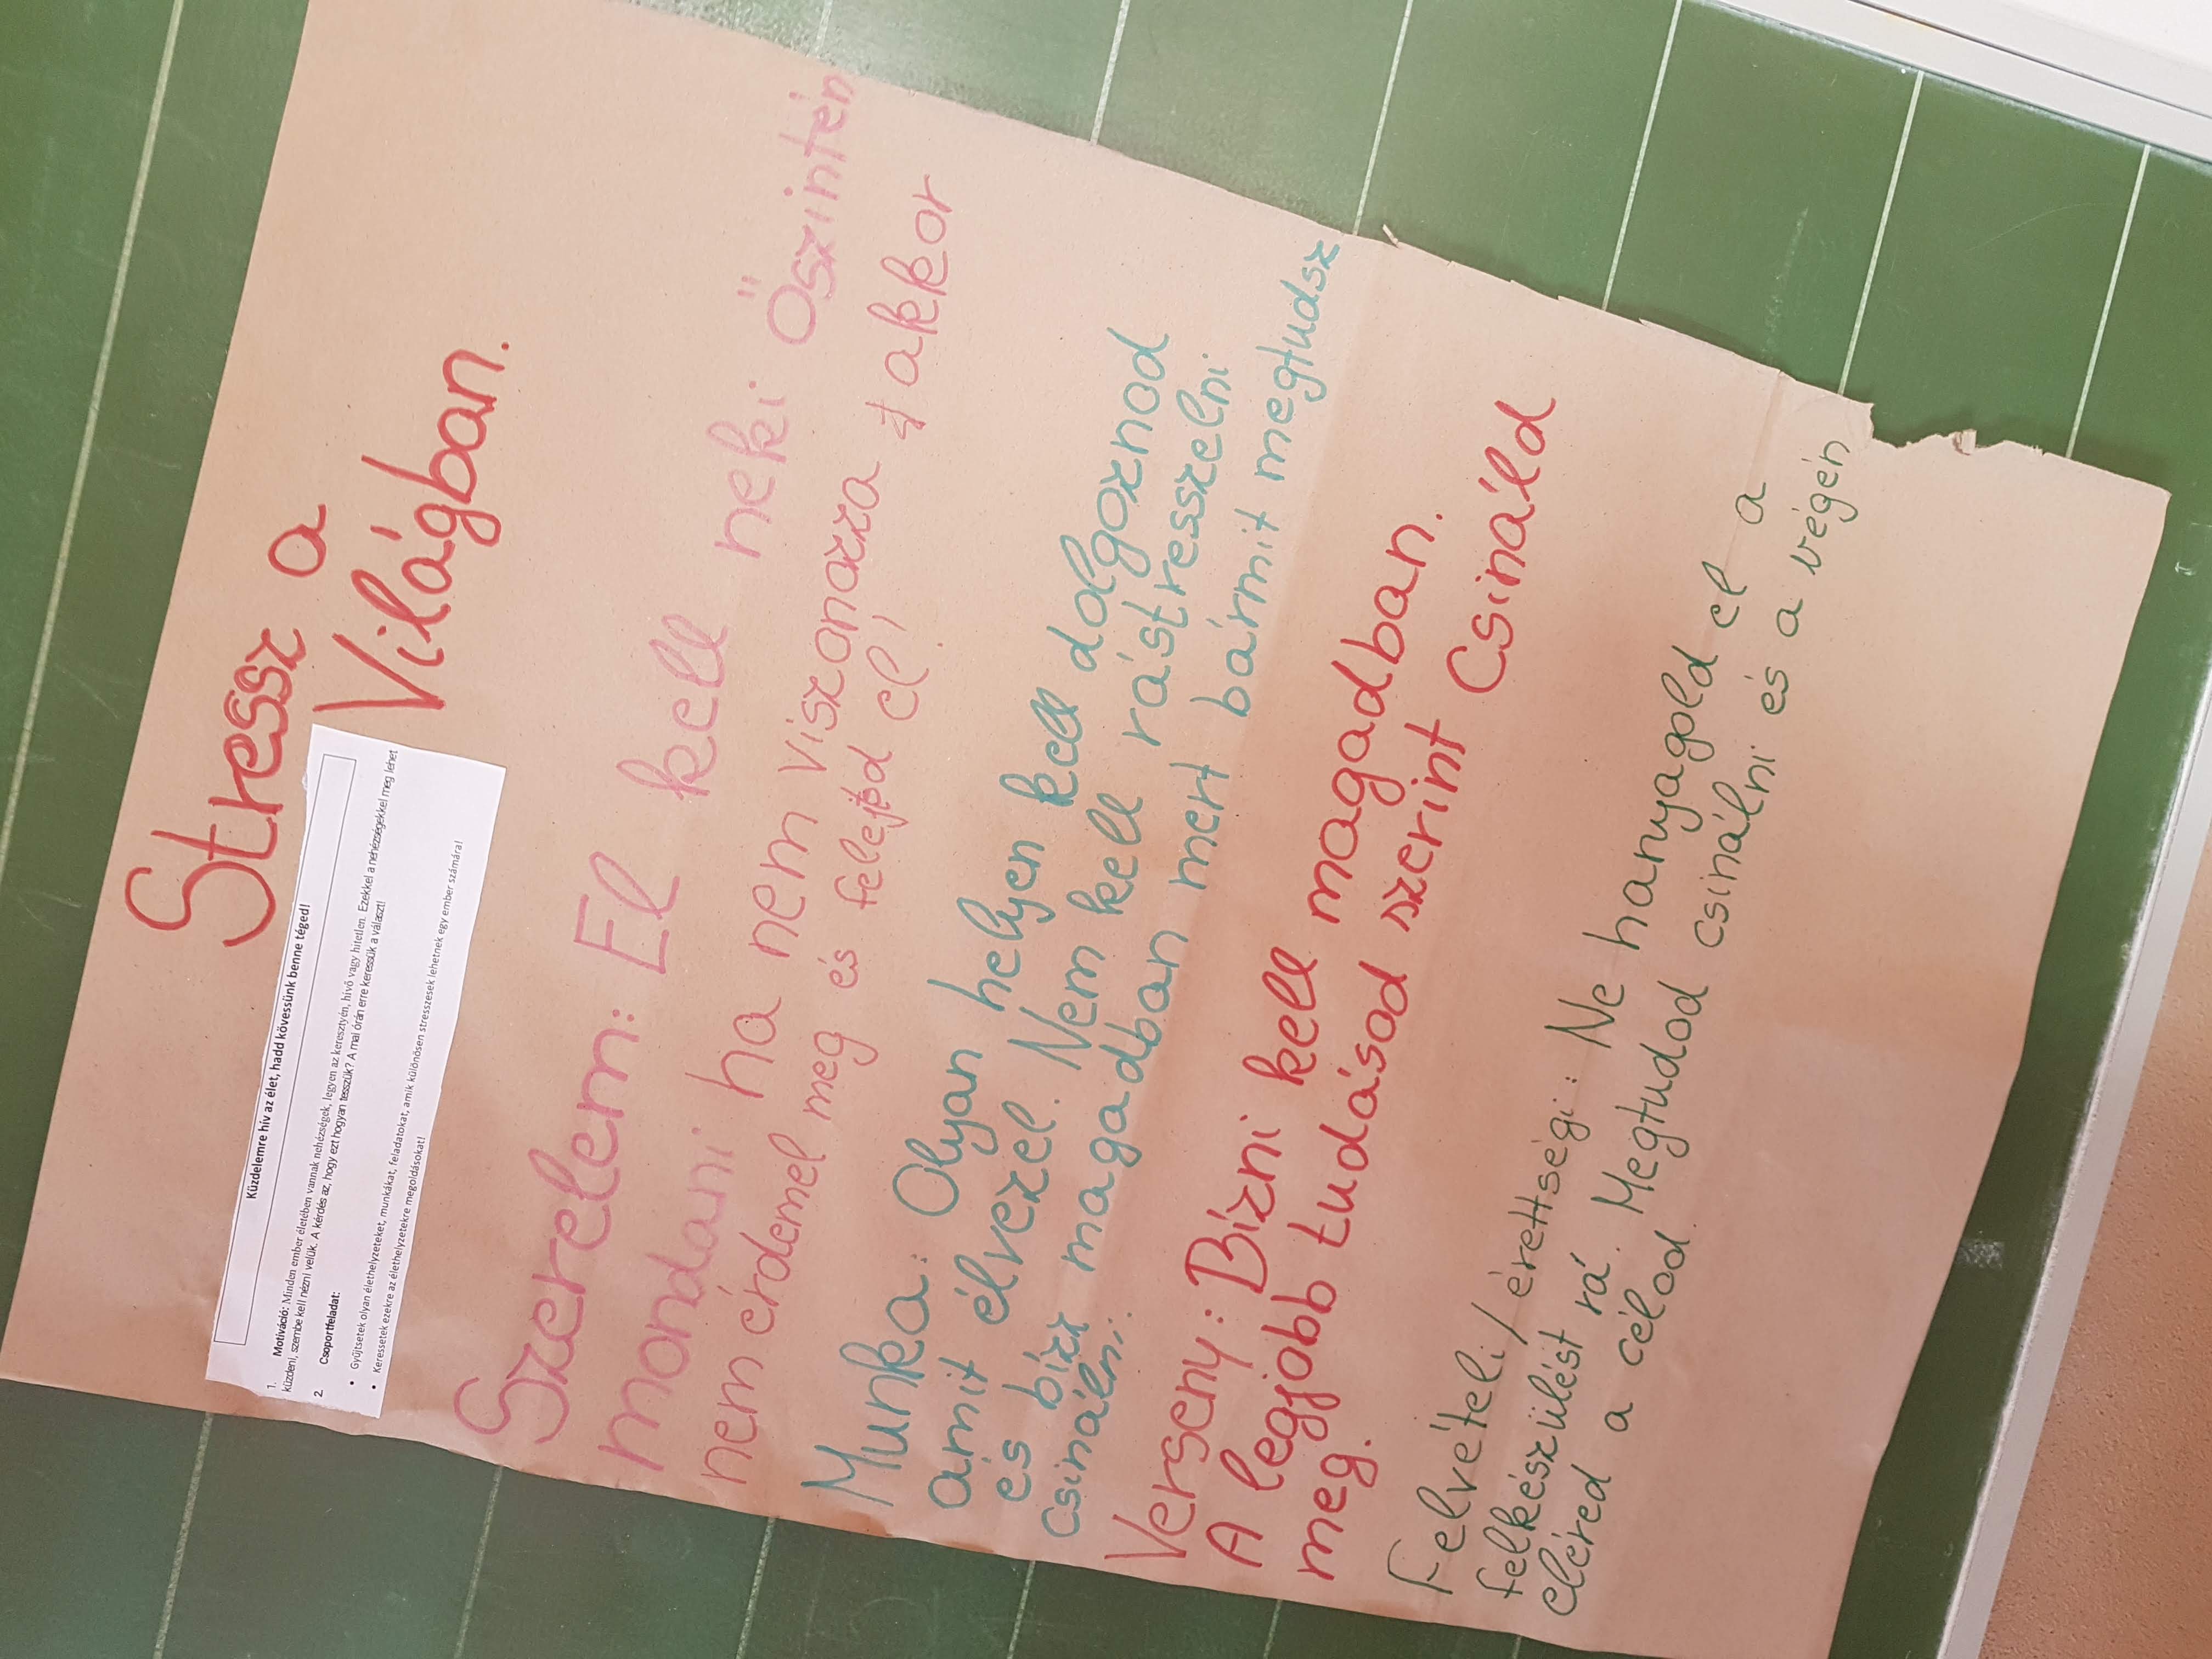 Stressz a
Világban.
Küzdelemre hív az élet, hadd kövessünk benne téged!
1. Motiváció: Minden ember életében vannak nehézségek, legyen az keresztyén, hívő vagy hitetlen. Ezekkel a nehézségekkel meg lehet
küzdeni, szembe kell nézni velük. A kérdés az, hogy ezt hogyan tesszük? A mai órán erre keressük a választ!
2. Csoportfeladat:
• Gyűjtsetek olyan élethelyzeteket, munkákat, feladatokat, amik különösen stresszesek lehetnek egy ember számára!
• Keressetek ezekre az élethelyzetekre megoldásokat!
Szerelem: El kell neki Őszintén
mondani ha nem viszonozza akkor
nem érdemel meg és felejtd el!
Munka: Olyan helyen kell dolgoznod
amit élvezel. Nem kell rástresszelni
és bízz magadban mert bármit megtudsz
csinálni.
Verseny: Bízni kell magadban.
A legjobb tudásod szerint Csináld
meg.
Felvételi/érettségi: Ne hanyagold el a
felkészülést rá. Megtudod csinálni és a végén
eléred a célod.